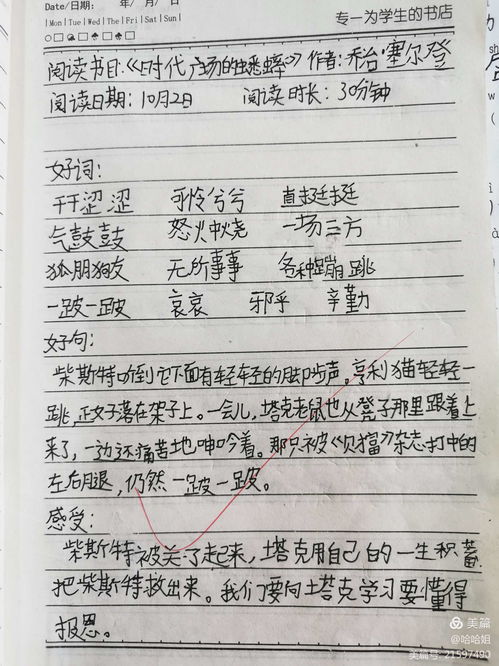 Date/日期: 年/ 月/ 日
Mon Tue Wed Thu Fri Sat Sun
专一为学生的书店
阅读书目:《时代广场的蟋蟀》作者:乔治塞尔登
阅读日期:10月2日 阅读时长:30分钟
好词:
干干涩涩 可怜兮兮 直挺挺
气鼓鼓 怒火中烧 一场三方
狐朋狗友 无所事事 各种蹦跳
一跛一跛 哀哀 邪乎 辛勤
好句:
柴斯特听到它下面有轻轻的脚步声,亨利猫轻轻一
跳,正好落在架子上。一会儿,塔克老鼠也从凳子那里跟着上
来了,一边还痛苦地呻吟着。那只被《贝猫》杂志打中的
左后腿,仍然一跛一跛。
感受:
柴斯特被关了起来,塔克用自己的一生积蓄
把柴斯特救出来。我们要向塔克学习要懂得
报恩。
美篇
@哈哈姐
美篇号:21597490